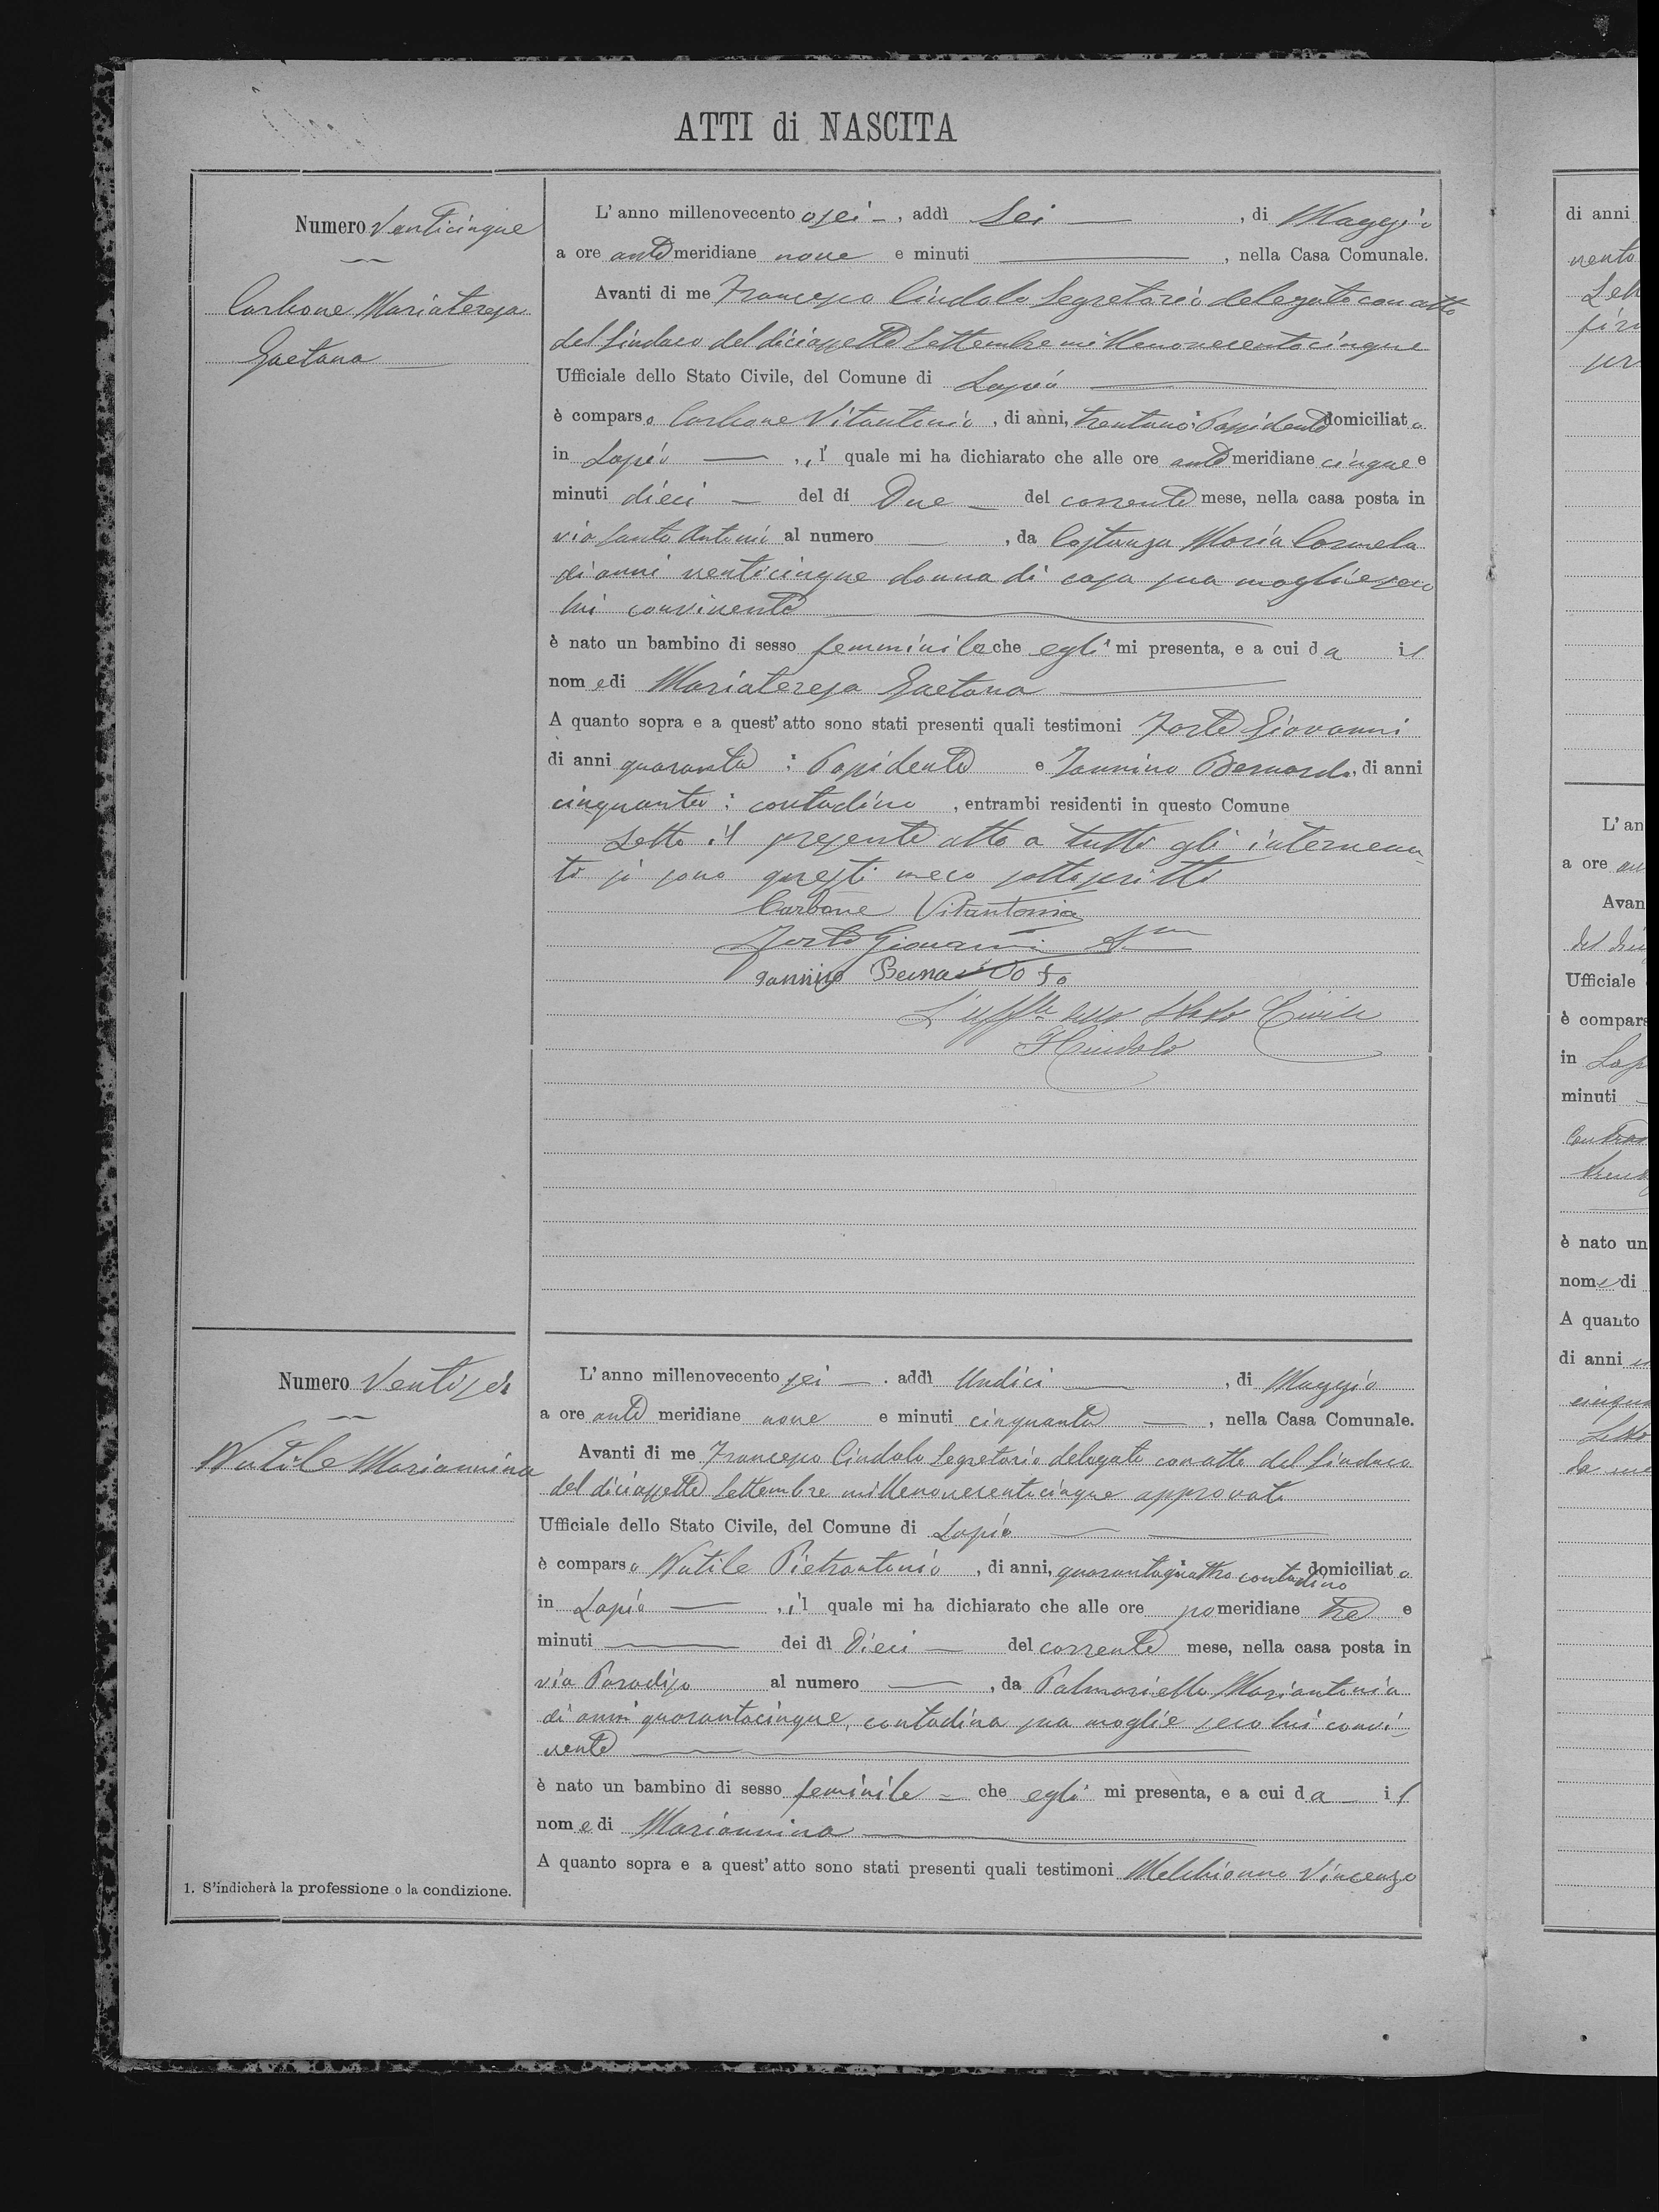 ATTI di NASCITA
Numero Venticinque
Carbone Mariateresa
Gaetana
L'anno millenovecento sei, addì Sei, di Maggio
a ore ante meridiane nove e minuti, nella Casa Comunale.
Avanti di me Francesco Cindolo Segretario delegato con atto
del Sindaco del diciassette Settembre millenovecentocinque
Ufficiale dello Stato Civile, del Comune di Lapio
è comparso Carbone Vitantonio, di anni, trentuno; Possidente domiciliato
in Lapio, il quale mi ha dichiarato che alle ore ante meridiane cinque e
minuti dieci del dí Due del corrente mese, nella casa posta in
via Santo Antonio al numero, da Costanza Maria Carmela
di anni venticinque donna di casa sua moglie seco
lui convivente
è nato un bambino di sesso femminile che egli mi presenta, e a cui da il
nome di Mariateresa Gaetana
A quanto sopra e a quest'atto sono stati presenti quali testimoni Forte Giovanni
di anni quaranta; Possidente e Iannino Bernardo, di anni
cinquanta; contadino, entrambi residenti in questo Comune
Letto il presente atto a tutti gli intervenu-
ti si sono questi meco sottoscritti
Carbone Vitantonio
Forte Giovanni
Iannino Bernardo
L'Uff.le dello Stato Civile
F Cindolo
Numero Ventisei
Nutile Mariannina
L'anno millenovecento sei. addì Undici, di Maggio
a ore ante meridiane nove e minuti cinquanta, nella Casa Comunale.
Avanti di me Francesco Cindolo Segretario delegato con atto del Sindaco
del diciassette Settembre millenovecentocinque approvato
Ufficiale dello Stato Civile, del Comune di Lapio
è comparso Nutile Pietrantonio, di anni, quarantaquattro contadino domiciliato
in Lapio, il quale mi ha dichiarato che alle ore pomeridiane tre e
minuti dei dì Dieci del corrente mese, nella casa posta in
via Paradiso al numero, da Palmariello Mariantonia
di anni quarantacinque, contadina sua moglie seco lui convi-
vente
è nato un bambino di sesso feminile che egli mi presenta, e a cui da il
nome di Mariannina
A quanto sopra e a quest'atto sono stati presenti quali testimoni Melchionna Vincenzo
1. S'indicherà la professione o la condizione.
di anni
L'an
a ore
Avan
Ufficiale
è compars
in Lap
minuti
è nato un
nome di
A quanto
di anni